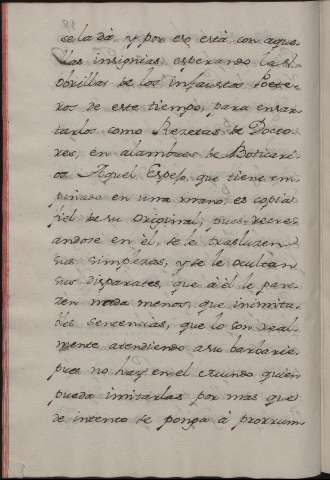 se la dà, y por eso està, con aque-
llas insignias, esperando las
obrillas de los infaustos Poeta-
ros de este tiempo, para ensar-
tarlos como Rezetas de Docto-
res, en alambres de Boticari-
os. Aquel Espejo, que tiene em-
puñado en una mano, es copia
fiel de su original, pues recre-
andose en èl, se le trasluzen
sus simplezas, y se le ocultan
sus disparates, que à èl le pare-
zen nada menos, que inimita-
bles sentencias, que lo son real-
mente atendiendo a su barbarie,
pues no hay en el Mundo quien
pueda imitarlas por mas que
de intento se ponga à prorrum-